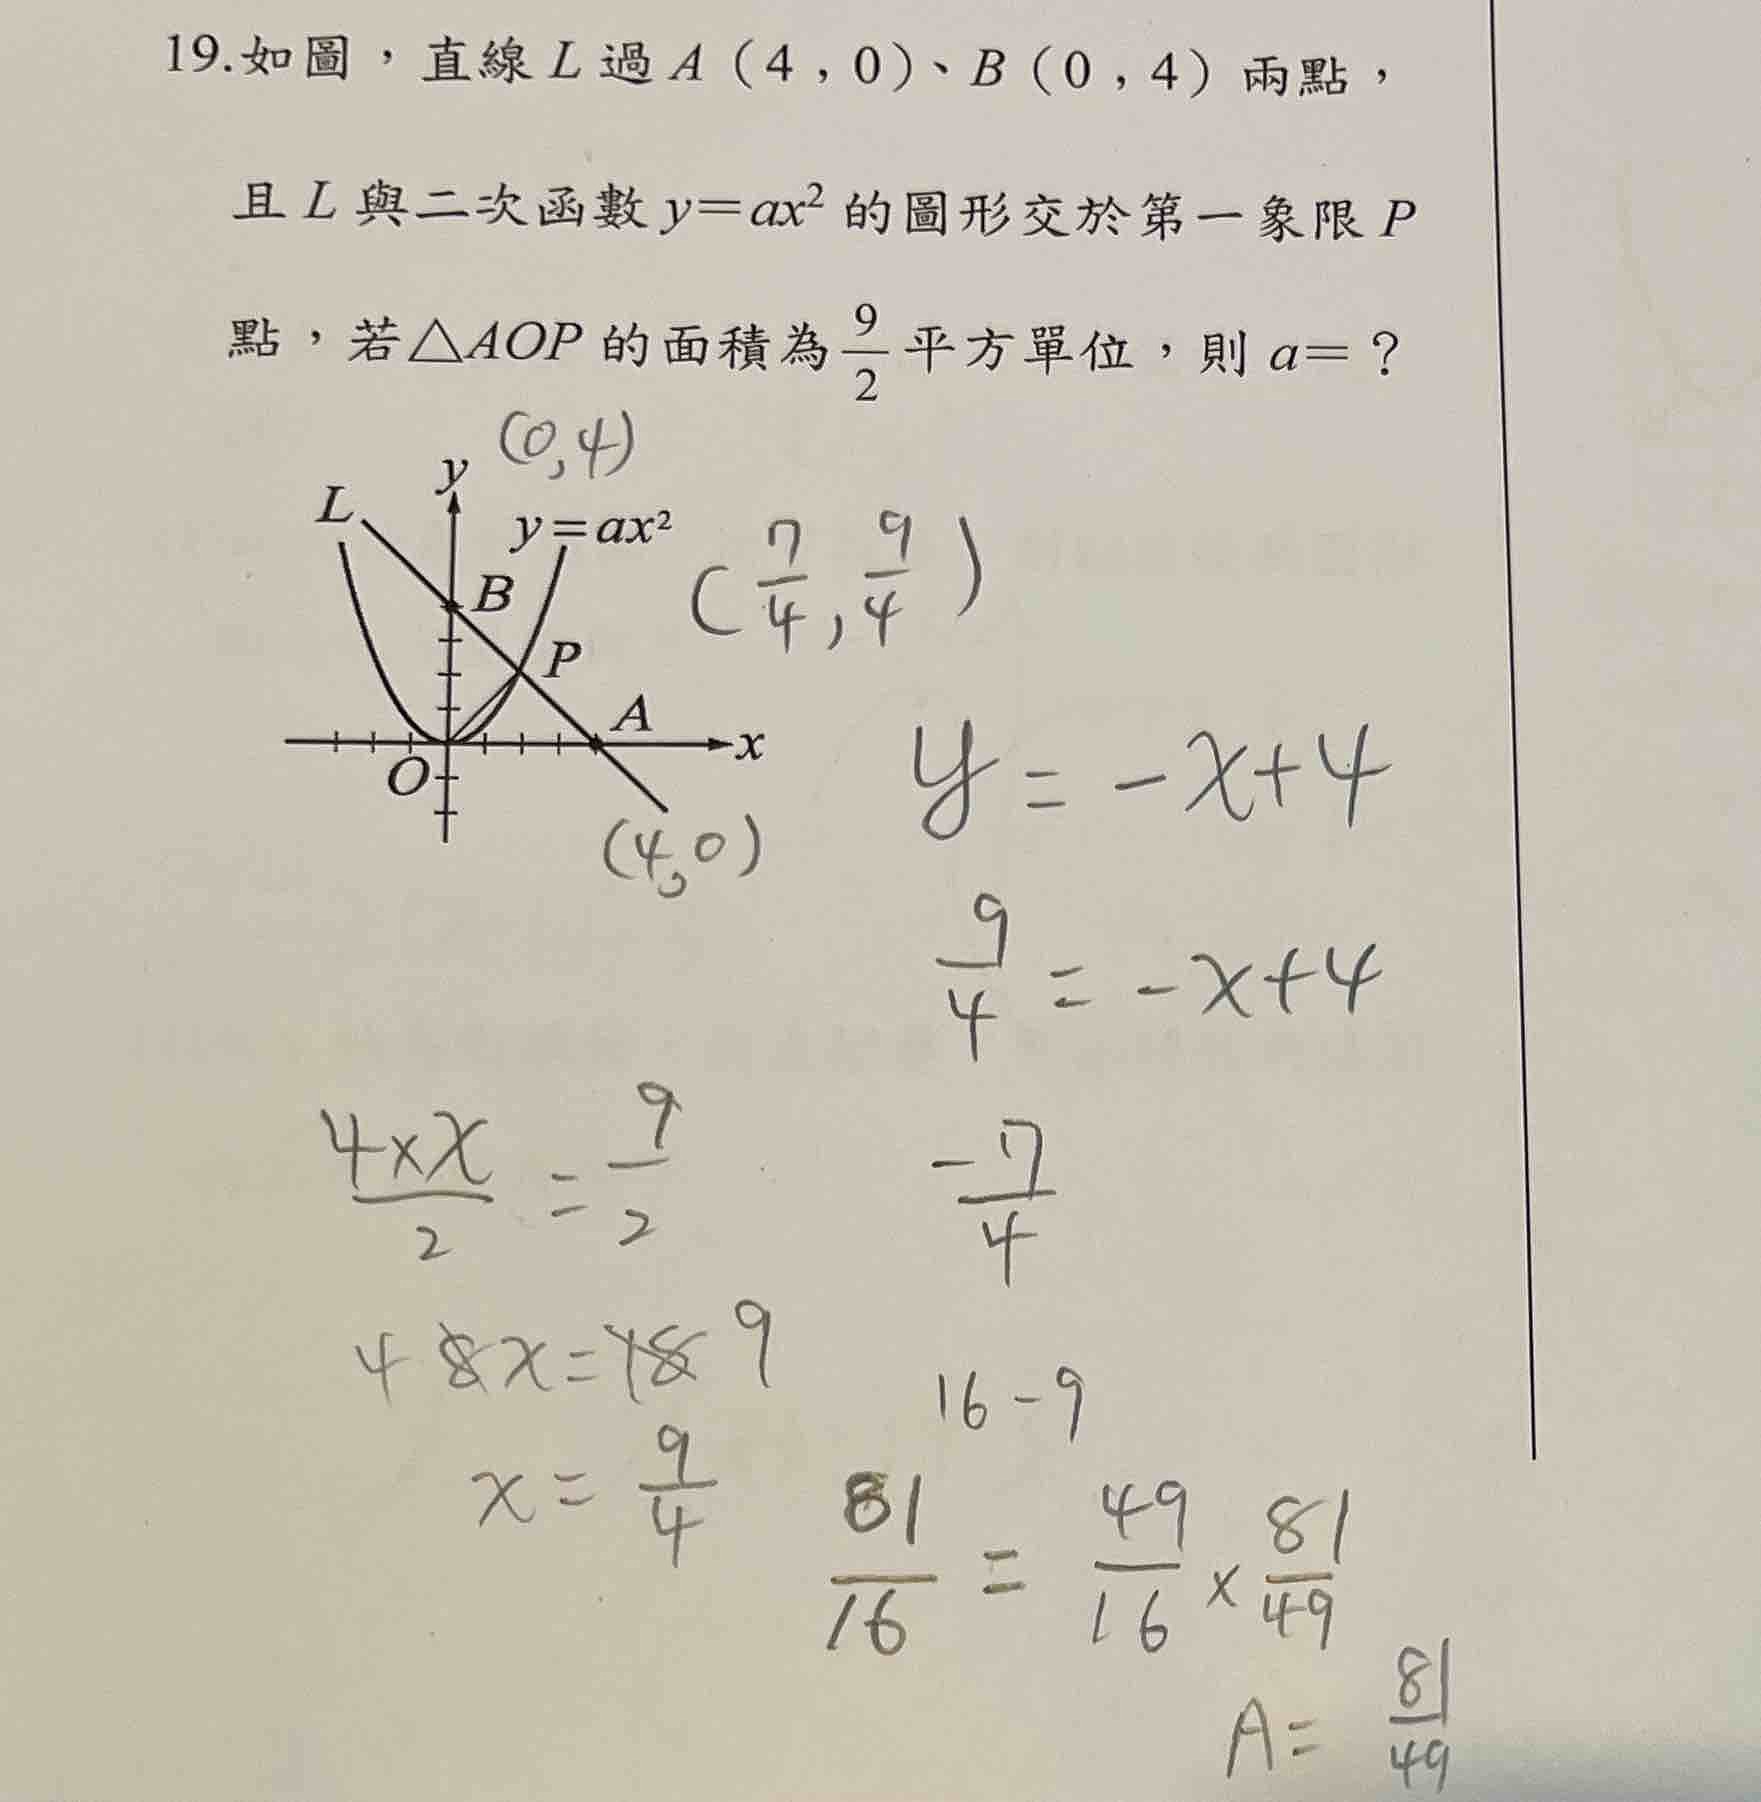 19.如圖，直線 L 過 A（4，0）、B（0，4）兩點，
且 L 與二次函數 y=ax² 的圖形交於第一象限 P
點，若△AOP 的面積為 9/2 平方單位，則 a=？
(0,4)
y
L
y=ax²
(7/4, 9/4)
B
P
A
x
O
(4,0)
y = -x+4
9/4 = -x+4
4×x/2 = 9/2
-7/4
4 8x=18 9
16-9
x = 9/4
81/16 = 49/16 × 81/49
A= 81/49